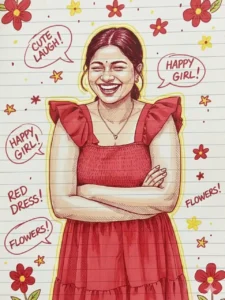 CUTE
LAUGH!
HAPPY
GIRL!
HAPPY,
GIRL!
RED
DRESS!
FLOWERS!
FLOWERS!